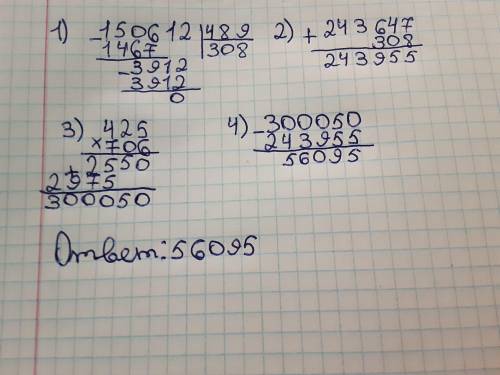 1) -150612 | 489
1467 | 308
-3912
3912
0
2) + 243647
308
243955
3) 425
×706
2550
+
2975
300050
4) -300050
243955
56095
Ответ: 56095